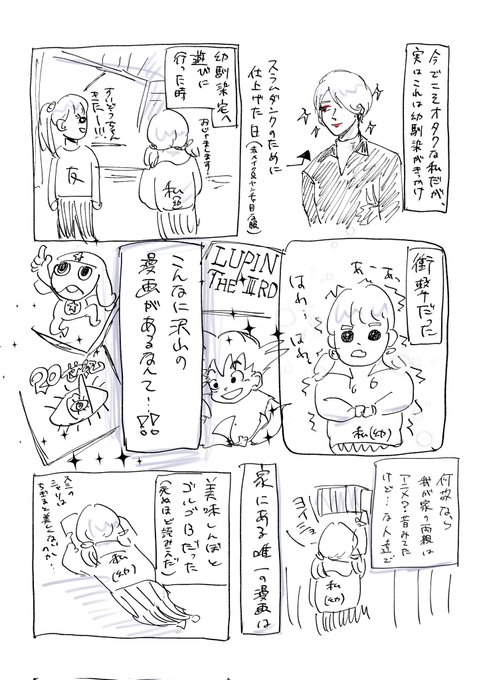 今でこそオタクな私だが、
実はこれは幼馴染がきっかけ
スラムダンクのために
仕上げた日
幼馴染宅へ
遊びに
行った時
おじゃまします
きたー!!!
友
私
(幼)
衝撃だった
あーあぁ
はわ…
はわ…
私(幼)
LUPIN
THE ⅢRD
こんなに沢山の
漫画があるなんて…!!
何故なら
我が家の両親は
アニメ?昔みてた
けど…な人達で
ヨイショ
私
(幼)
家にある唯一の漫画は
美味しんぼと
ゴルゴ13だった
(死ぬほど読み込んだ)
私
(幼)